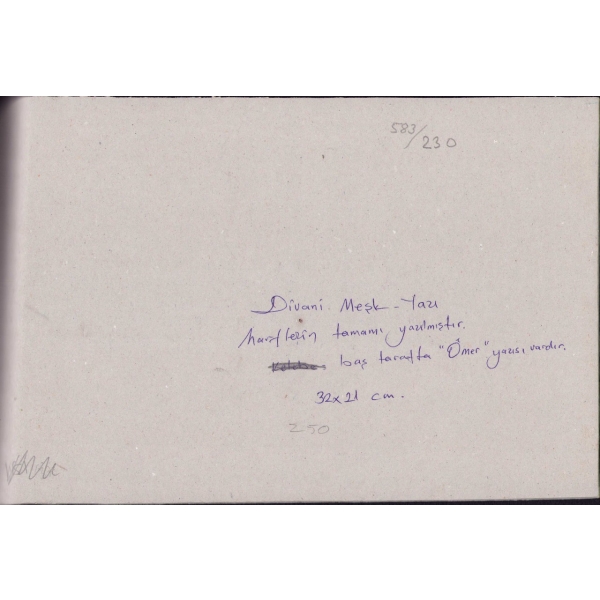 583/230
Divani Meşk - Yazı
harflerin tamamı yazılmıştır.
baş tarafta "Ömer" yazısı vardır.
32x21 cm.
250